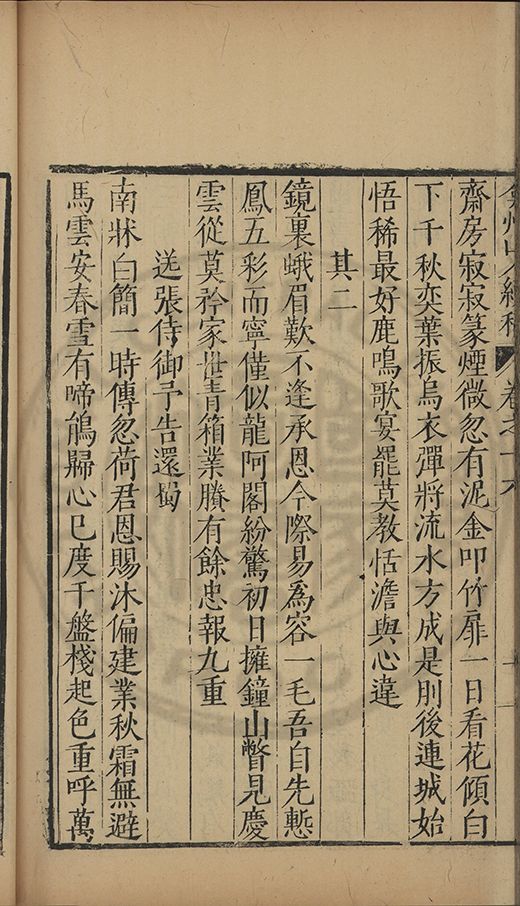 弇州山人續稿 卷之十六
齋房寂寂篆煙微忽有泥金叩竹扉一日看花傾白
下千秋奕葉振烏衣彈將流水方成是刖後連城始
悟稀最好鹿鳴歌宴罷莫教恬澹與心違
其二
鏡裏蛾眉歎不逢承恩今際易爲容一毛吾自先慙
鳳五彩而寧僅似龍阿閣紛驚初日擁鐘山瞥見慶
雲從莫矜家世青箱業賸有餘忠報九重
送張侍御予告還蜀
南牀白簡一時傳忽荷君恩賜沐偏建業秋霜無避
馬雲安春雪有啼鵑歸心已度千盤棧起色重呼萬